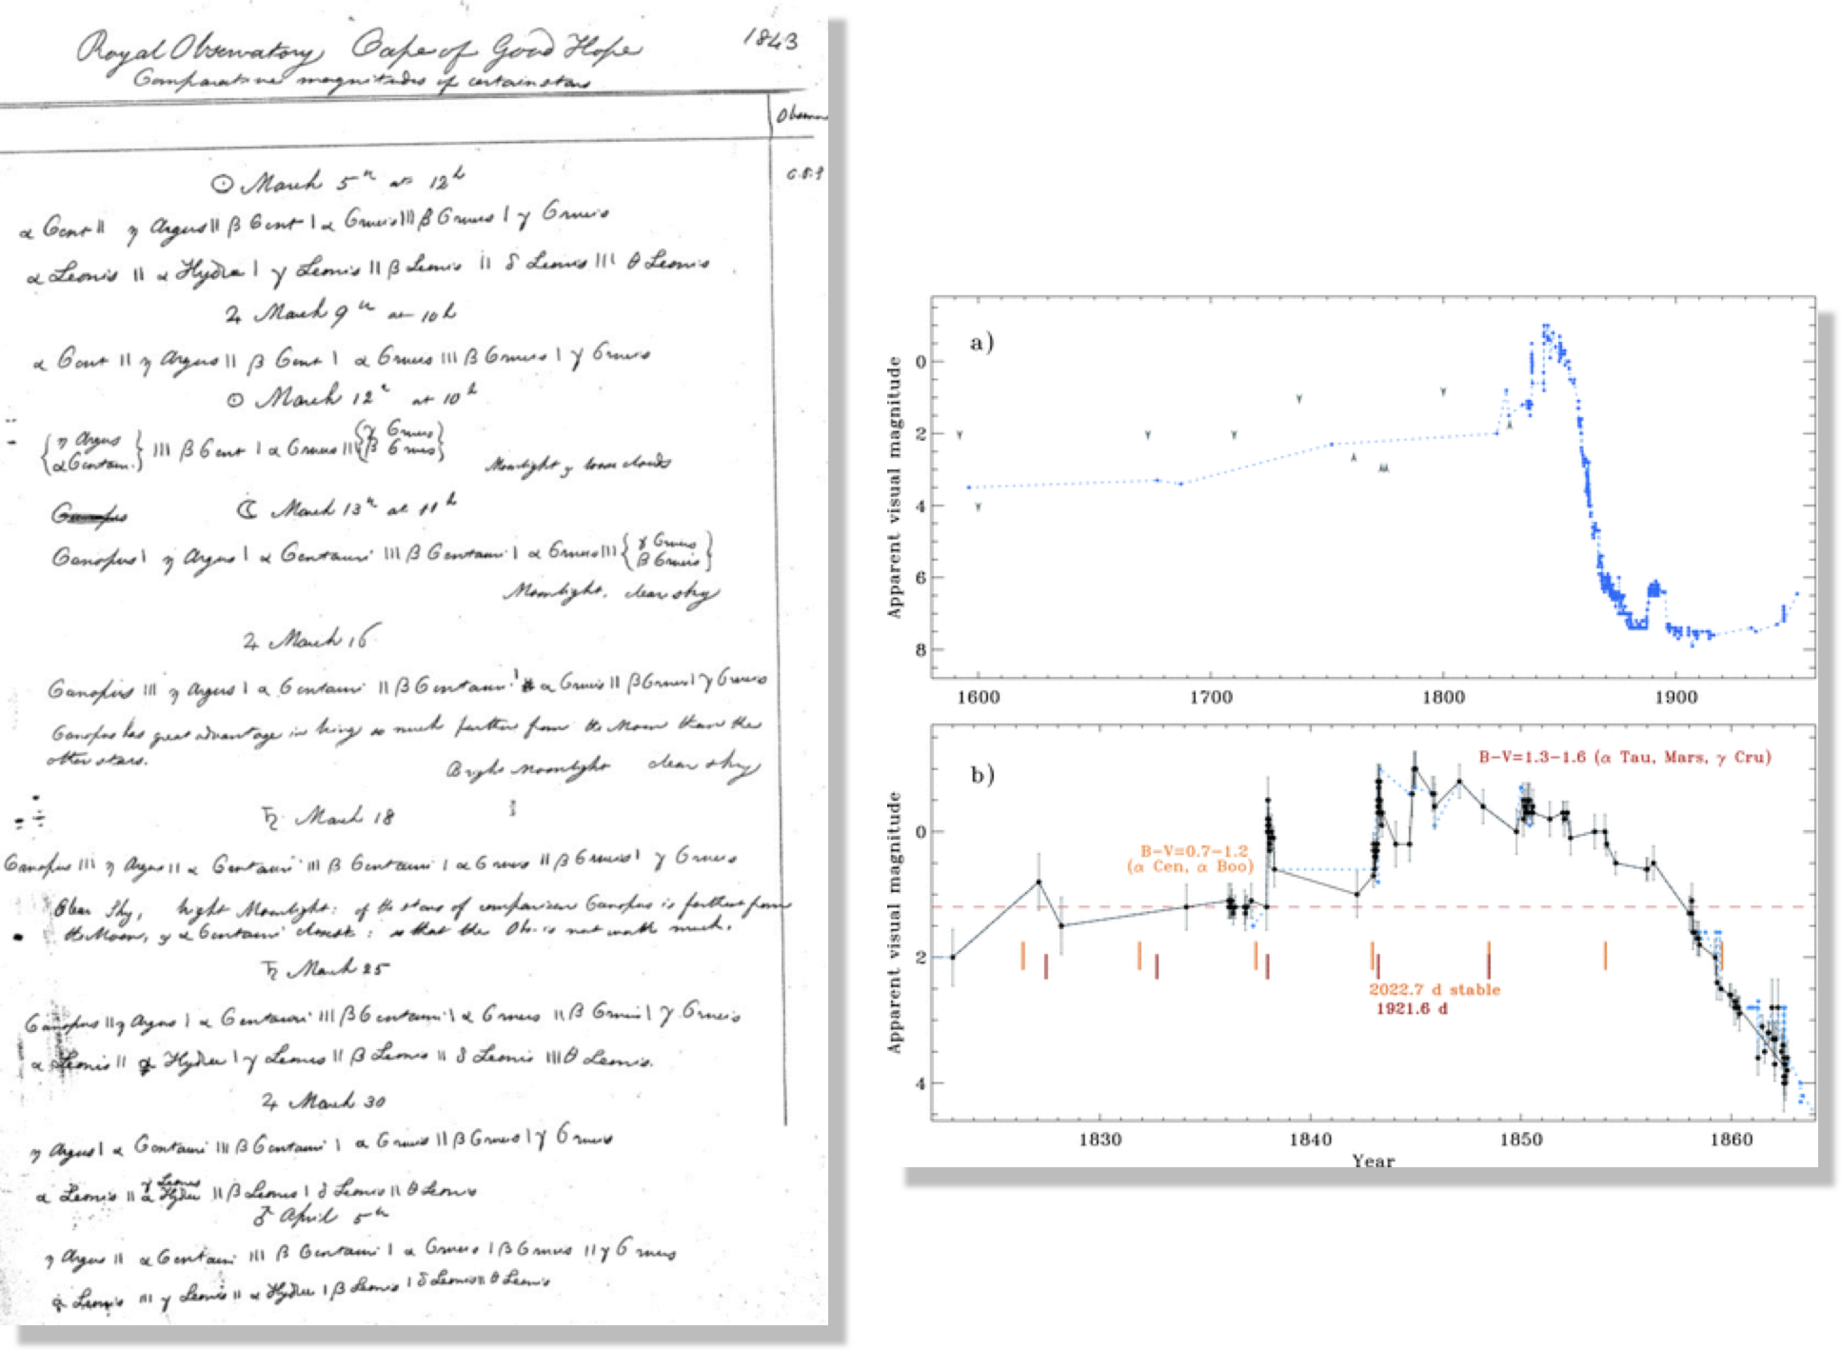 Royal Observatory Cape of Good Hope 1843
Comparative magnitudes of certain stars
Observer
☉ March 5th at 12h
α Cent || η Argus || β Cent | α Gruis ||| β Gruis | γ Gruis
α Leonis || α Hydræ | γ Leonis || β Leonis || δ Leonis ||| θ Leonis
♃ March 9th at 10h
α Cent || η Argus || β Cent | α Gruis ||| β Gruis | γ Gruis
☉ March 12th at 10h
{η Argus
α Centauri} ||| β Cent | α Gruis ||| {γ Gruis
β Gruis}
Moonlight & loose clouds
Canopus ☾ March 13th at 11h
Canopus | η Argus | α Centauri ||| β Centauri | α Gruis ||| {γ Gruis
β Gruis}
Moonlight, clear sky
♃ March 16
Canopus ||| η Argus | α Centauri || β Centauri | α Gruis || β Gruis | γ Gruis
Canopus has great advantage in being so much farther from the Moon than the
other stars.
Bright Moonlight clear sky
♄ March 18
Canopus ||| η Argus || α Centauri ||| β Centauri | α Gruis || β Gruis | γ Gruis
Clear Sky, bright Moonlight: of the stars of comparison Canopus is farthest from
the Moon, & α Centauri closest: so that the Obs. is not worth much.
♄ March 25
Canopus || η Argus | α Centauri ||| β Centauri | α Gruis || β Gruis | γ Gruis
α Leonis || α Hydræ | γ Leonis || β Leonis || δ Leonis ||| θ Leonis.
♃ March 30
η Argus | α Centauri ||| β Centauri | α Gruis || β Gruis | γ Gruis
α Leonis || γ Leonis
α Hydræ || β Leonis | δ Leonis || θ Leonis
♂ April 5th
η Argus || α Centauri ||| β Centauri | α Gruis | β Gruis || γ Gruis
α Leonis ||| γ Leonis || α Hydræ | β Leonis | δ Leonis || θ Leonis
a)
Apparent visual magnitude
0
2
4
6
8
1600 1700 1800 1900
b)
B-V=1.3-1.6 (α Tau, Mars, γ Cru)
B-V=0.7-1.2
(α Cen, α Boo)
Apparent visual magnitude
0
2
4
2022.7 d stable
1921.6 d
1830 1840 1850 1860
Year